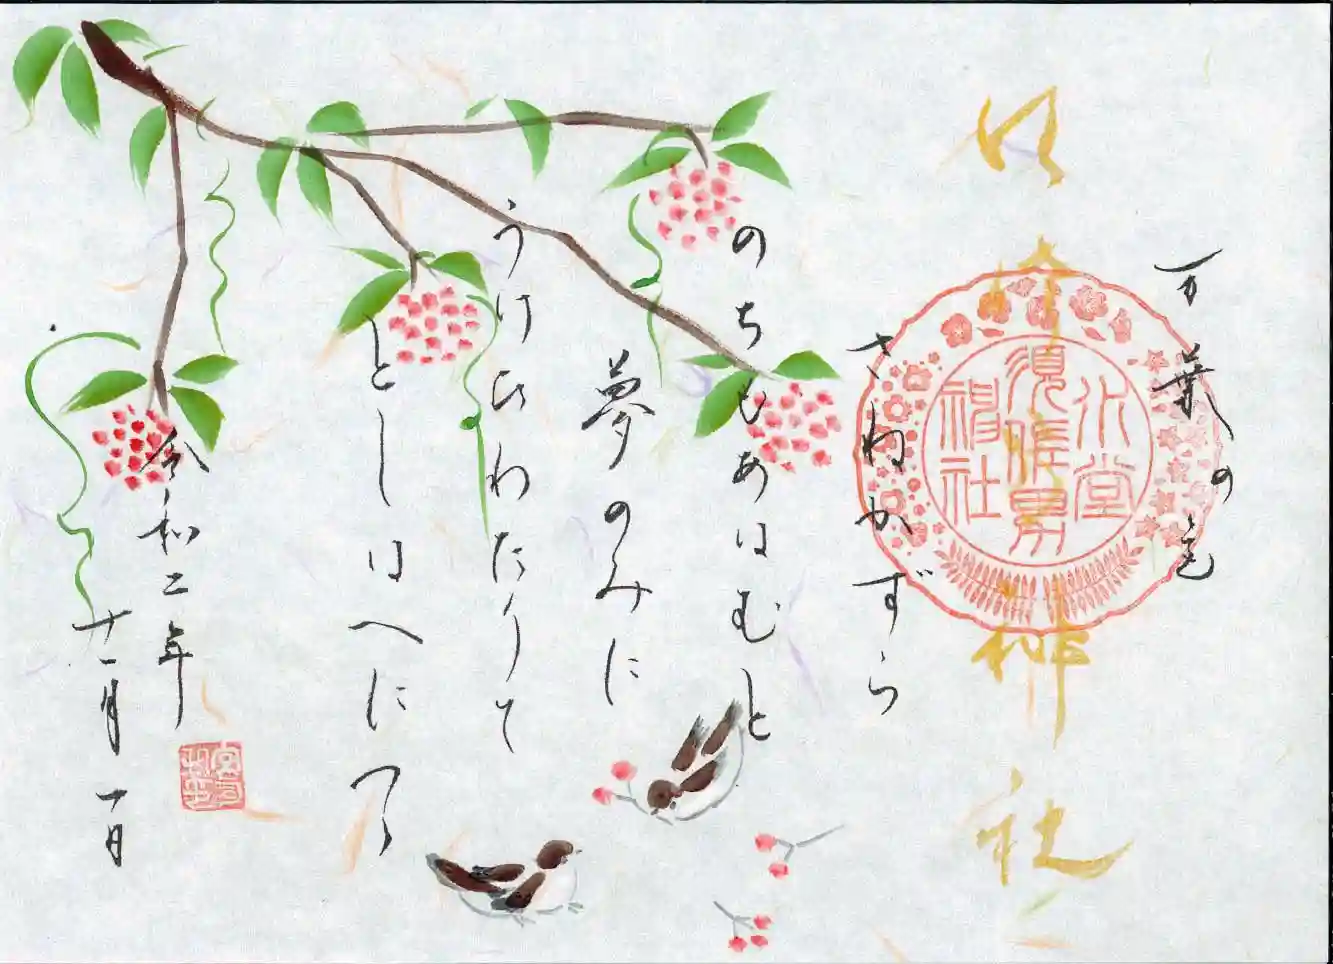 万葉の花
さねかずら
のちもあはむと
夢のみに
うけひわたりて
としはへにつつ
令和二年
十一月一日
水堂
須佐男
神社